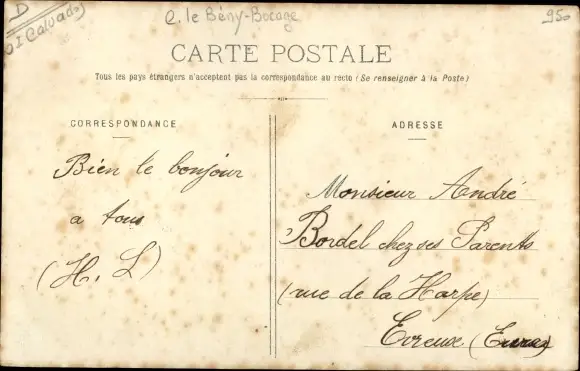 D
(Calvados)
C. le Bény-Bocage
950
CARTE POSTALE
Tous les pays étrangers n'acceptent pas la correspondance au recto (Se renseigner à la Poste)
CORRESPONDANCE
Bien le bonjour
a tous
(H. L)
ADRESSE
Monsieur André
Bordel chez ses Parents
(rue de la Harpe)
Evreux (Eure)